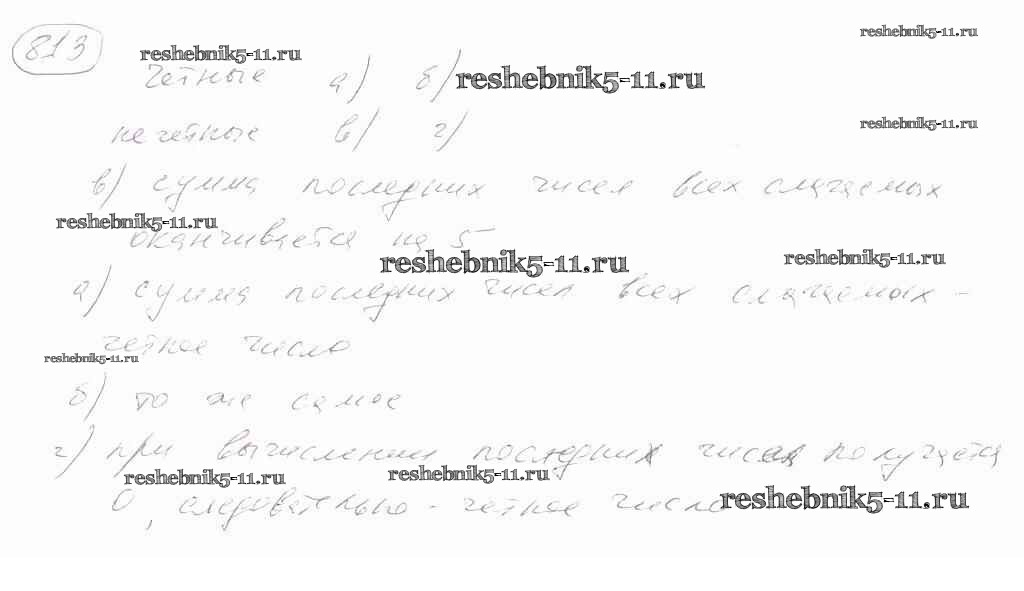 813
reshebnik5-11.ru
reshebnik5-11.ru
четные а) б)
reshebnik5-11.ru
нечетные в) г)
reshebnik5-11.ru
в) сумма последних чисел всех слагаемых
reshebnik5-11.ru
оканчивается на 5
reshebnik5-11.ru
reshebnik5-11.ru
а) сумма последних чисел всех слагаемых -
четное число
reshebnik5-11.ru
б) то же самое
г) при вычислении последних чисел получается
reshebnik5-11.ru
reshebnik5-11.ru
0, следовательно - четное число
reshebnik5-11.ru